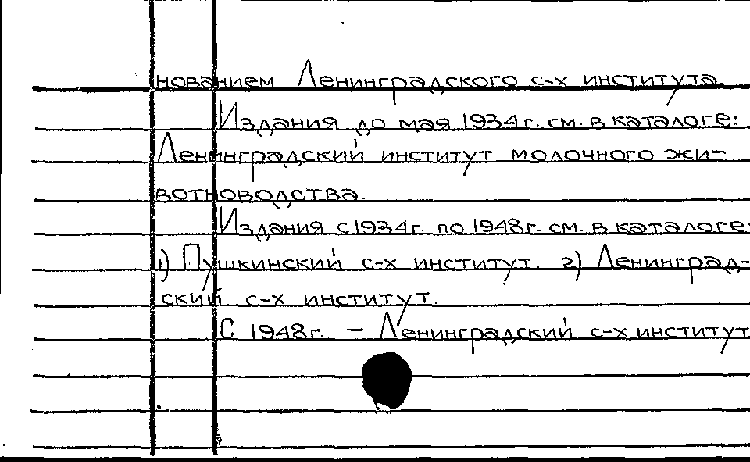 нованием Ленинградского с-х института.
Издания до мая 1934г. см. в каталоге:
Ленинградский институт молочного жи-
вотноводства.
Издания с 1934г. по 1948г. см. в каталоге:
1) Пушкинский с-х институт. 2) Ленинград-
ский с-х институт.
С 1948г. — Ленинградский с-х институт